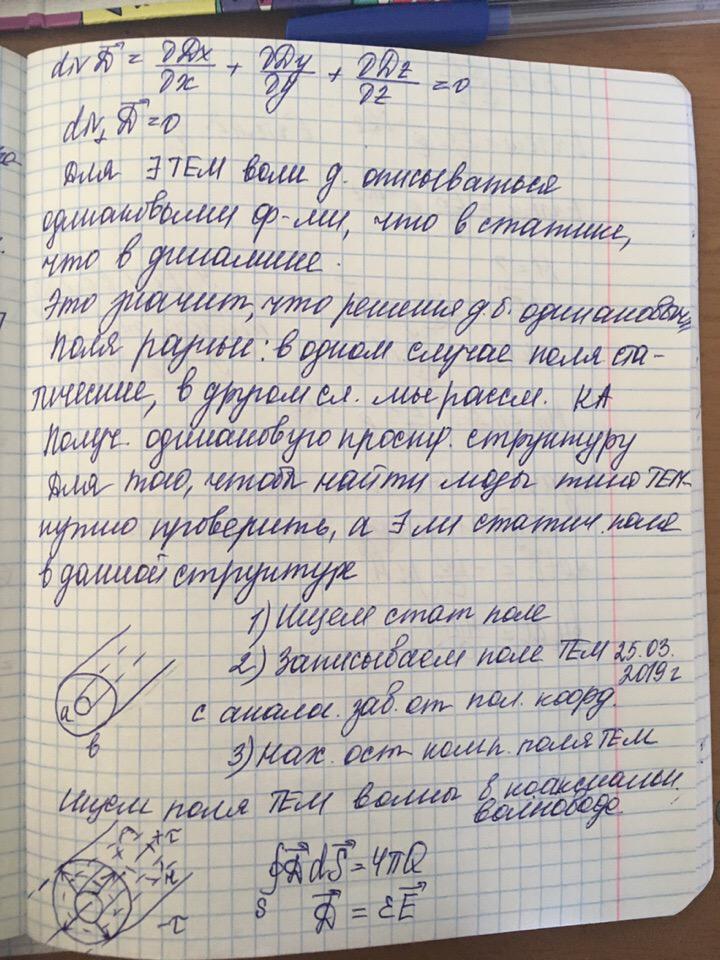 div D⃗ = ∂Dx/∂x + ∂Dy/∂y + ∂Dz/∂z = 0
div⊥ D⃗ = 0
Для ∃ ТЕМ волн д. описываться
одинаковыми ф-ми, что в статике,
что в динамике.
Это значит, что решения д.б. одинаковы
Поля разные: в одном случае поля ста-
тические, в другом сл. мы рассм.
Получ. одинаковую простр. структуру
Для того, чтобы найти моды типа ТЕМ-
нужно проверить, а ∃ ли статич. поле
в данной структуре
1) Ищем стат поле
2) Записываем поле ТЕМ 25.03.
2019 г
с аналог. зав. от поп. коорд.
3) Нах. ост комп. поля ТЕМ
a
b
Ищем поля ТЕМ волны в коаксиальн.
волноводе
+τ
-τ
∮ D⃗ dS⃗ = 4πQ
S
D⃗ = εE⃗